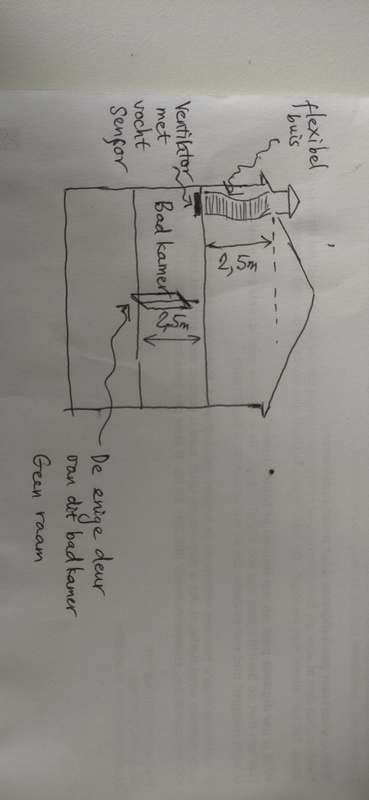 flexibel
buis
Ventilator
met
vocht
Sensor
2,5m
Bad kamer
2,5m
De enige deur
van dit badkamer
Geen raam